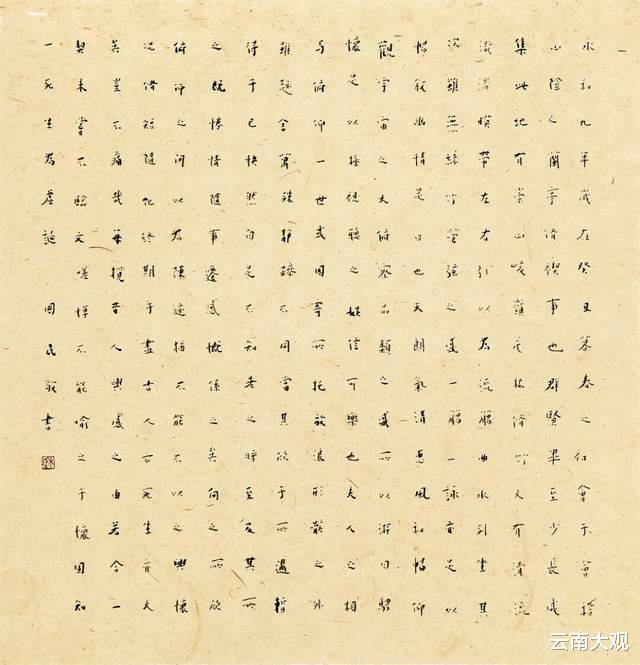 永和九年歲在癸丑暮春之初會于會稽
山陰之蘭亭脩禊事也群賢畢至少長咸
集此地有崇山峻嶺茂林脩竹又有清流
激湍映帶左右引以為流觴曲水列坐其
次雖無絲竹管弦之盛一觴一詠亦足以
暢敘幽情是日也天朗氣清惠風和暢仰
觀宇宙之大俯察品類之盛所以游目騁
懷足以極視聽之娛信可樂也夫人之相
与俯仰一世或因寄所托放浪形骸之外
雖趣舍萬殊靜躁不同當其欣于所遇暫
得于己快然自足不知老之將至及其所
之既惓情隨事遷感慨係之矣向之所欣
俯仰之間以為陳迹猶不能不以之興懷
况脩短隨化終期于盡古人云死生亦大
矣豈不痛哉每攬昔人興感之由若合一
契未嘗不臨文嗟悼不能喻之于懷固知
一死生為虛誕 書
云南大观